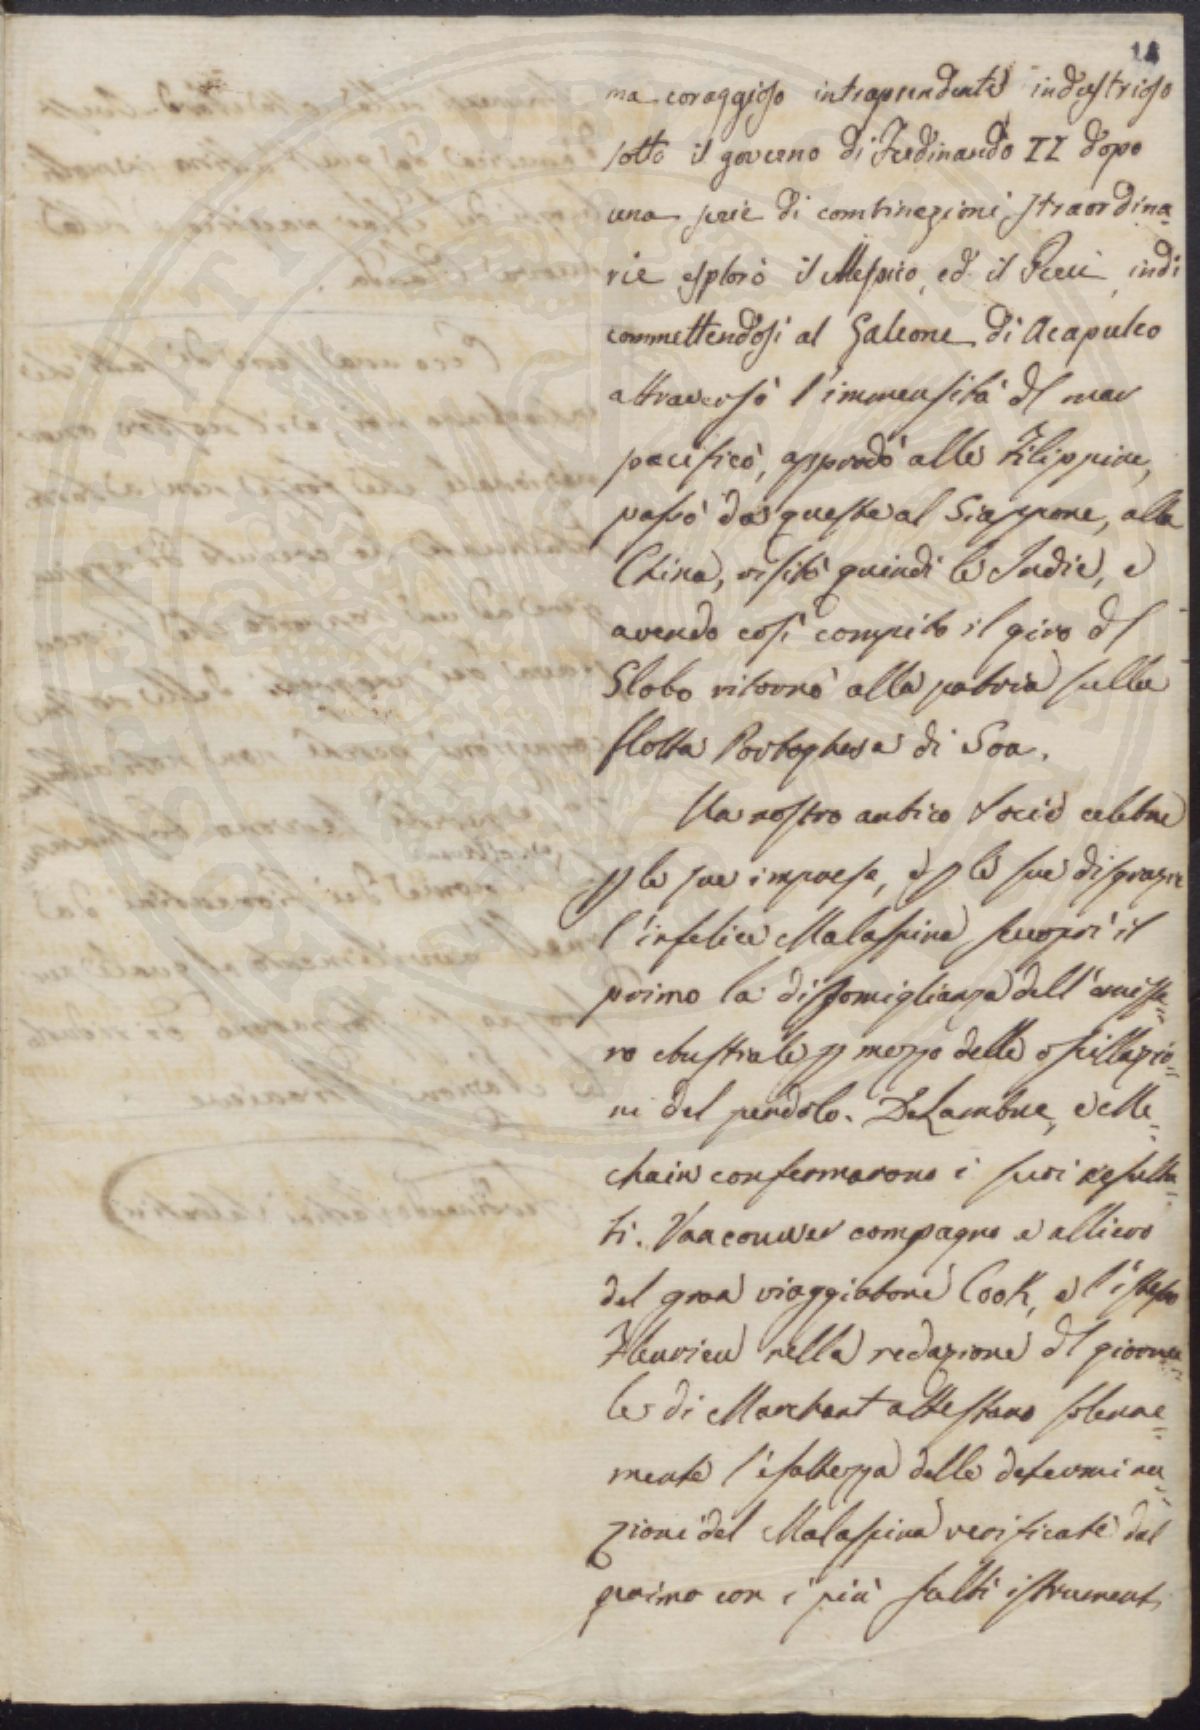 14
ma coraggioso intraprendente industrioso
sotto il governo di Ferdinando II dopo
una serie di combinazioni straordina=
rie esplorò il Messico, ed il Perù, indi
commettendosi al Galeone di Acapulco
attraversò l'immensità dl mar
pacifico, approdò alle Filippine,
passò da queste al Giappone, alla
China, visitò quindi le Indie, e
avendo così compito il giro dl
Globo ritornò alla patria sulla
flotta Portoghesa di Goa.
Un nostro antico Socio celebre
p le sue imprese, e p le sue disgrazie
l'infelice Malaspina scuoprì il
primo la dissomiglianza dell'emisfe=
ro Australe p mezzo delle oscillazio=
ni del pendolo. DeLambre, e Me=
chain confermarono i suoi resulta=
ti. Vancouver compagno e allievo
del gran viaggiatore Cook, e l'istesso
Fleurieu nella redazione dl giorna=
le di Marchant attestano solenne=
mente l'esattezza delle determina=
zioni del Malaspina verificate dal
primo con i più esatti istrumenti